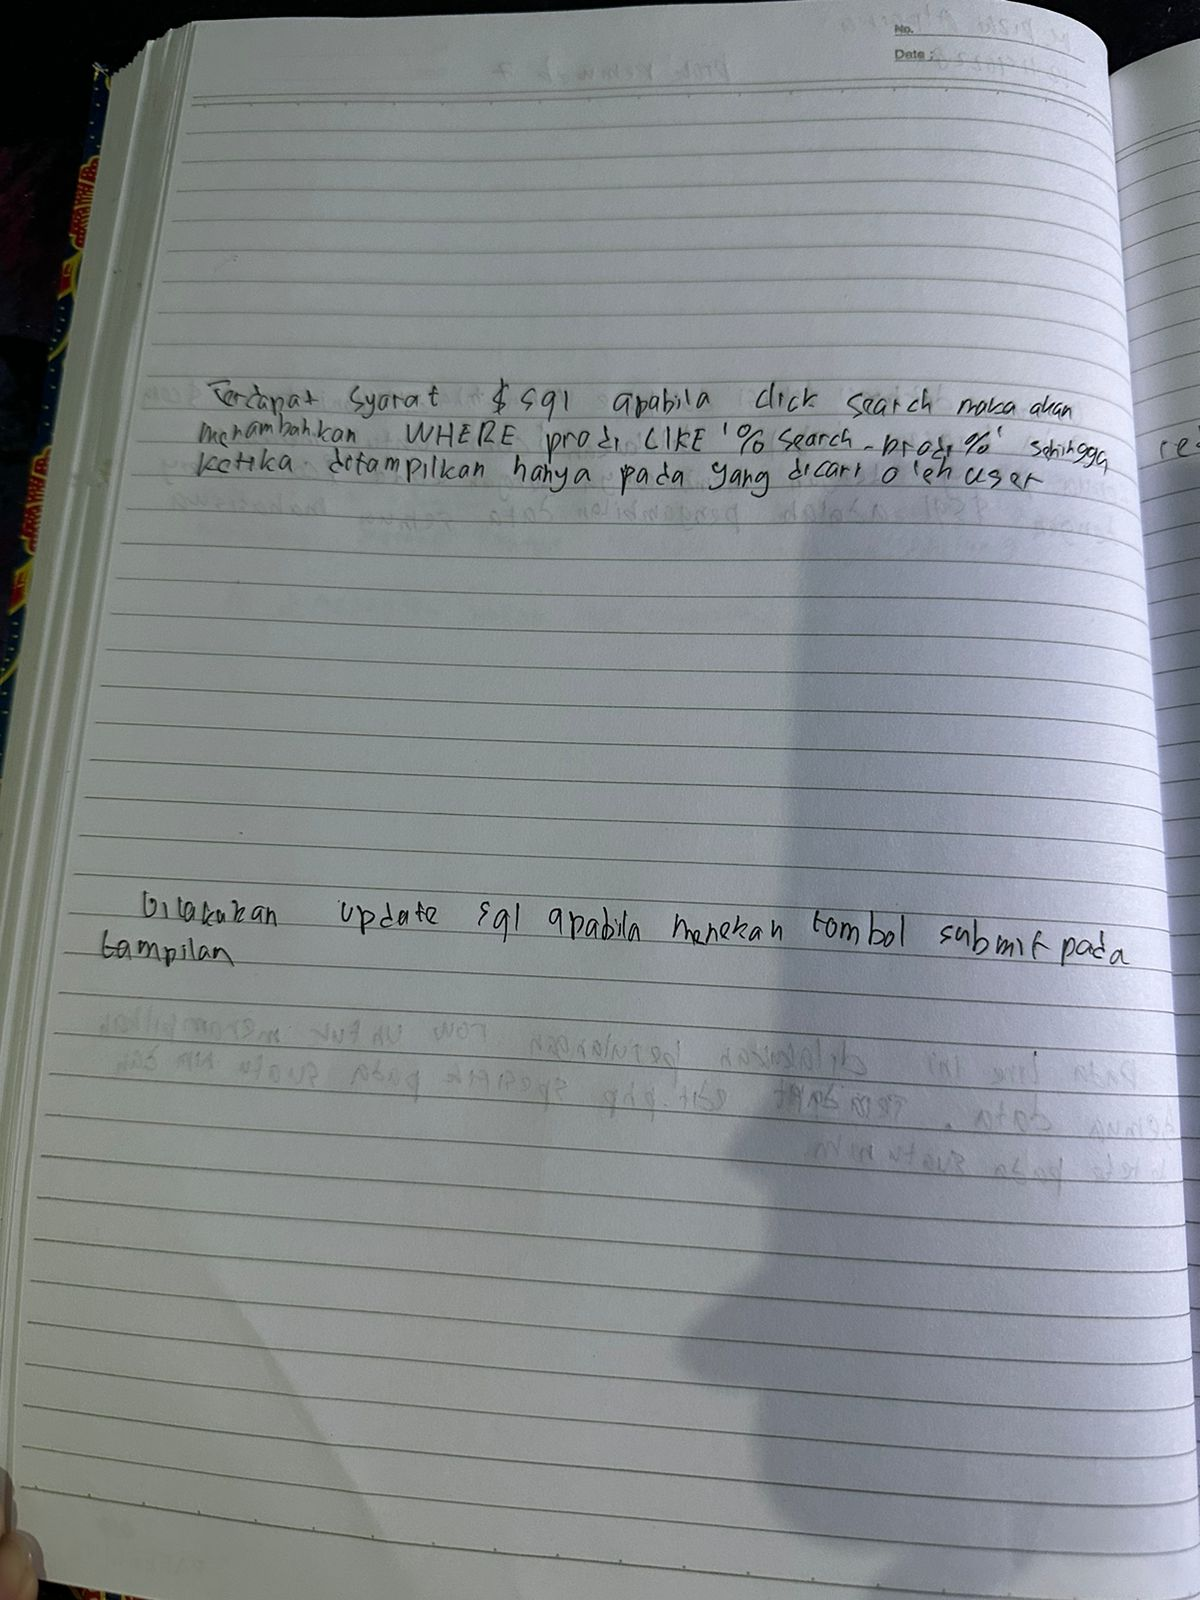 No.
Date :
Terdapat syarat $sql apabila click search maka akan
menambahkan WHERE prodi LIKE '%search_prodi%' sehingga
ketika ditampilkan hanya pada yang dicari oleh user
Dilakukan update sql apabila menekan tombol submit pada
tampilan